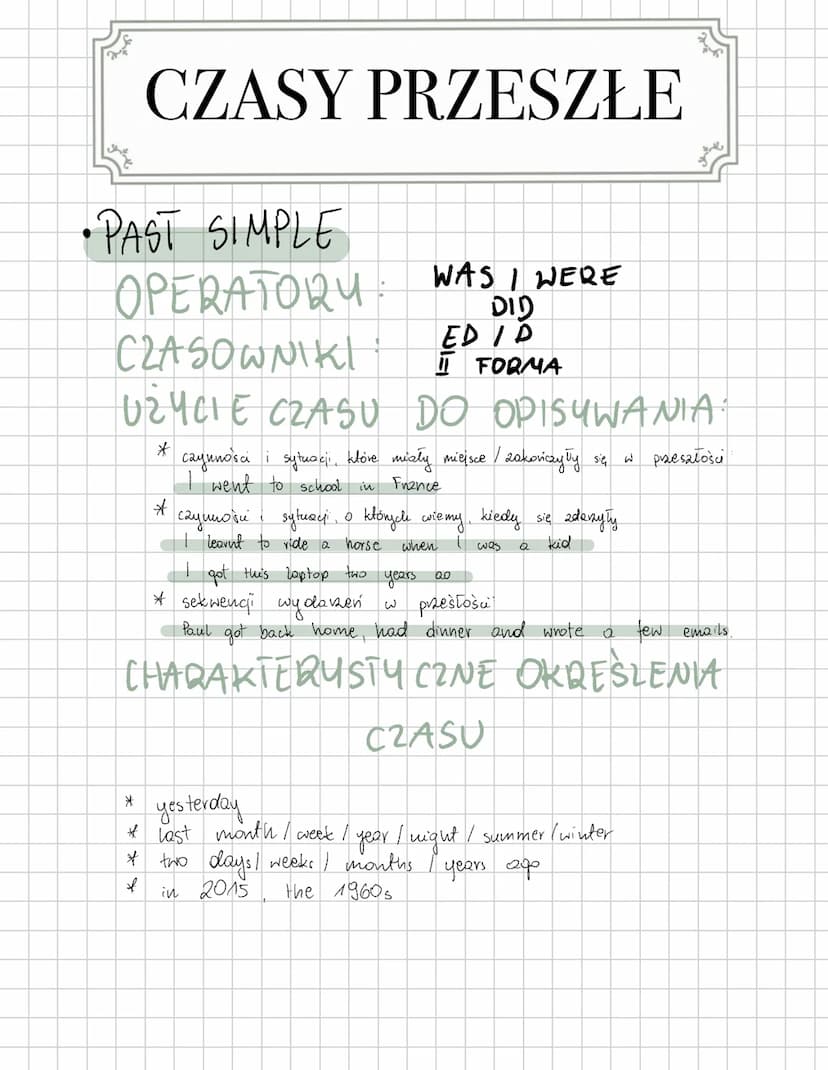 CZASY PRZESZŁE
• PAST SIMPLE
OPERATORY: WAS / WERE
DID
CZASOWNIKI: ED / D
II FORMA
UŻYCIE CZASU DO OPISYWANIA:
* czynności i sytuacji, które miały miejsce / zakończyły się w przeszłości
I went to school in France
* czynności i sytuacji, o których wiemy, kiedy się zdarzyły
I learnt to ride a horse when I was a kid
I got this laptop two years ao
* sekwencji wydarzeń w przesłości
Paul got back home, had dinner and wrote a few emails.
CHARAKTERYSTYCZNE OKREŚLENIA
CZASU
* yesterday
* last month / week / year / night / summer / winter
* two days / weeks / months / years ago
* in 2015, the 1960s